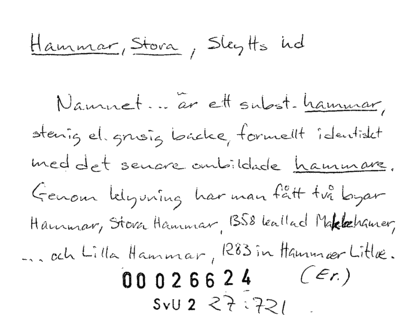 Hammar, Stora, Skytts hd
Namnet ... är ett subst. hammar,
stenig el. grusig backe, formellt identiskt
med det senare ombildade hammare.
Genom klyvning har man fått två byar
Hammar, Stora Hammar, 1358 kallad Maklæhamer,
... och Lilla Hammar, 1283 in Hammær Litlæ.
00026624 (Er.)
SvU 2 27:721